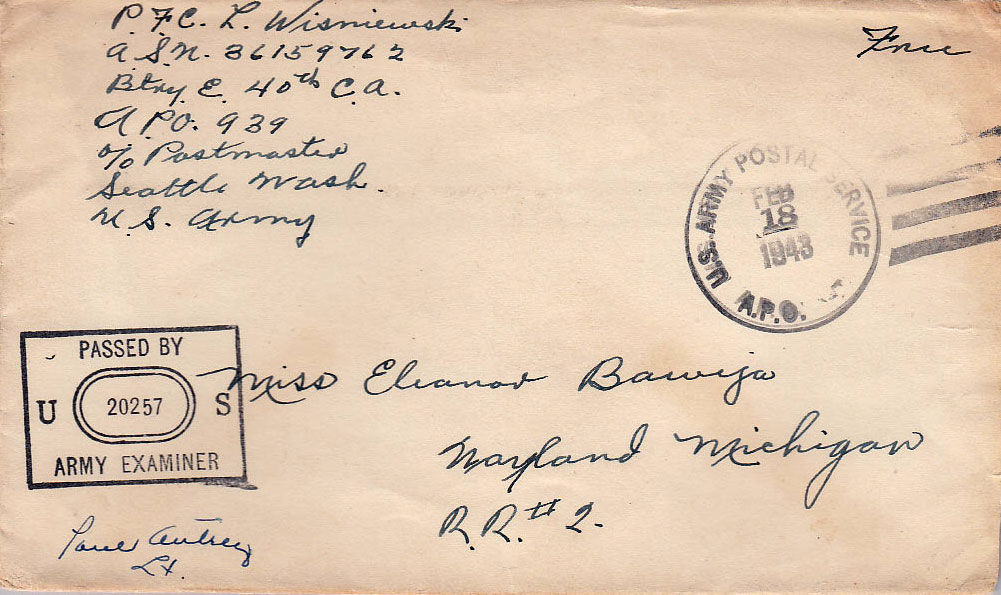 P.F.C. L. Wisniewski
A.S.N. 36159762
Btry. E. 40th C.A.
A.P.O. 939
c/o Postmaster
Seattle Wash.
U.S. Army
Free
U.S. ARMY POSTAL SERVICE
FEB
18
1943
A.P.O.
PASSED BY
U 20257 S
ARMY EXAMINER
Miss Eleanor Bawija
Wayland Michigan
R.R. #2.
Autrey
Lt.